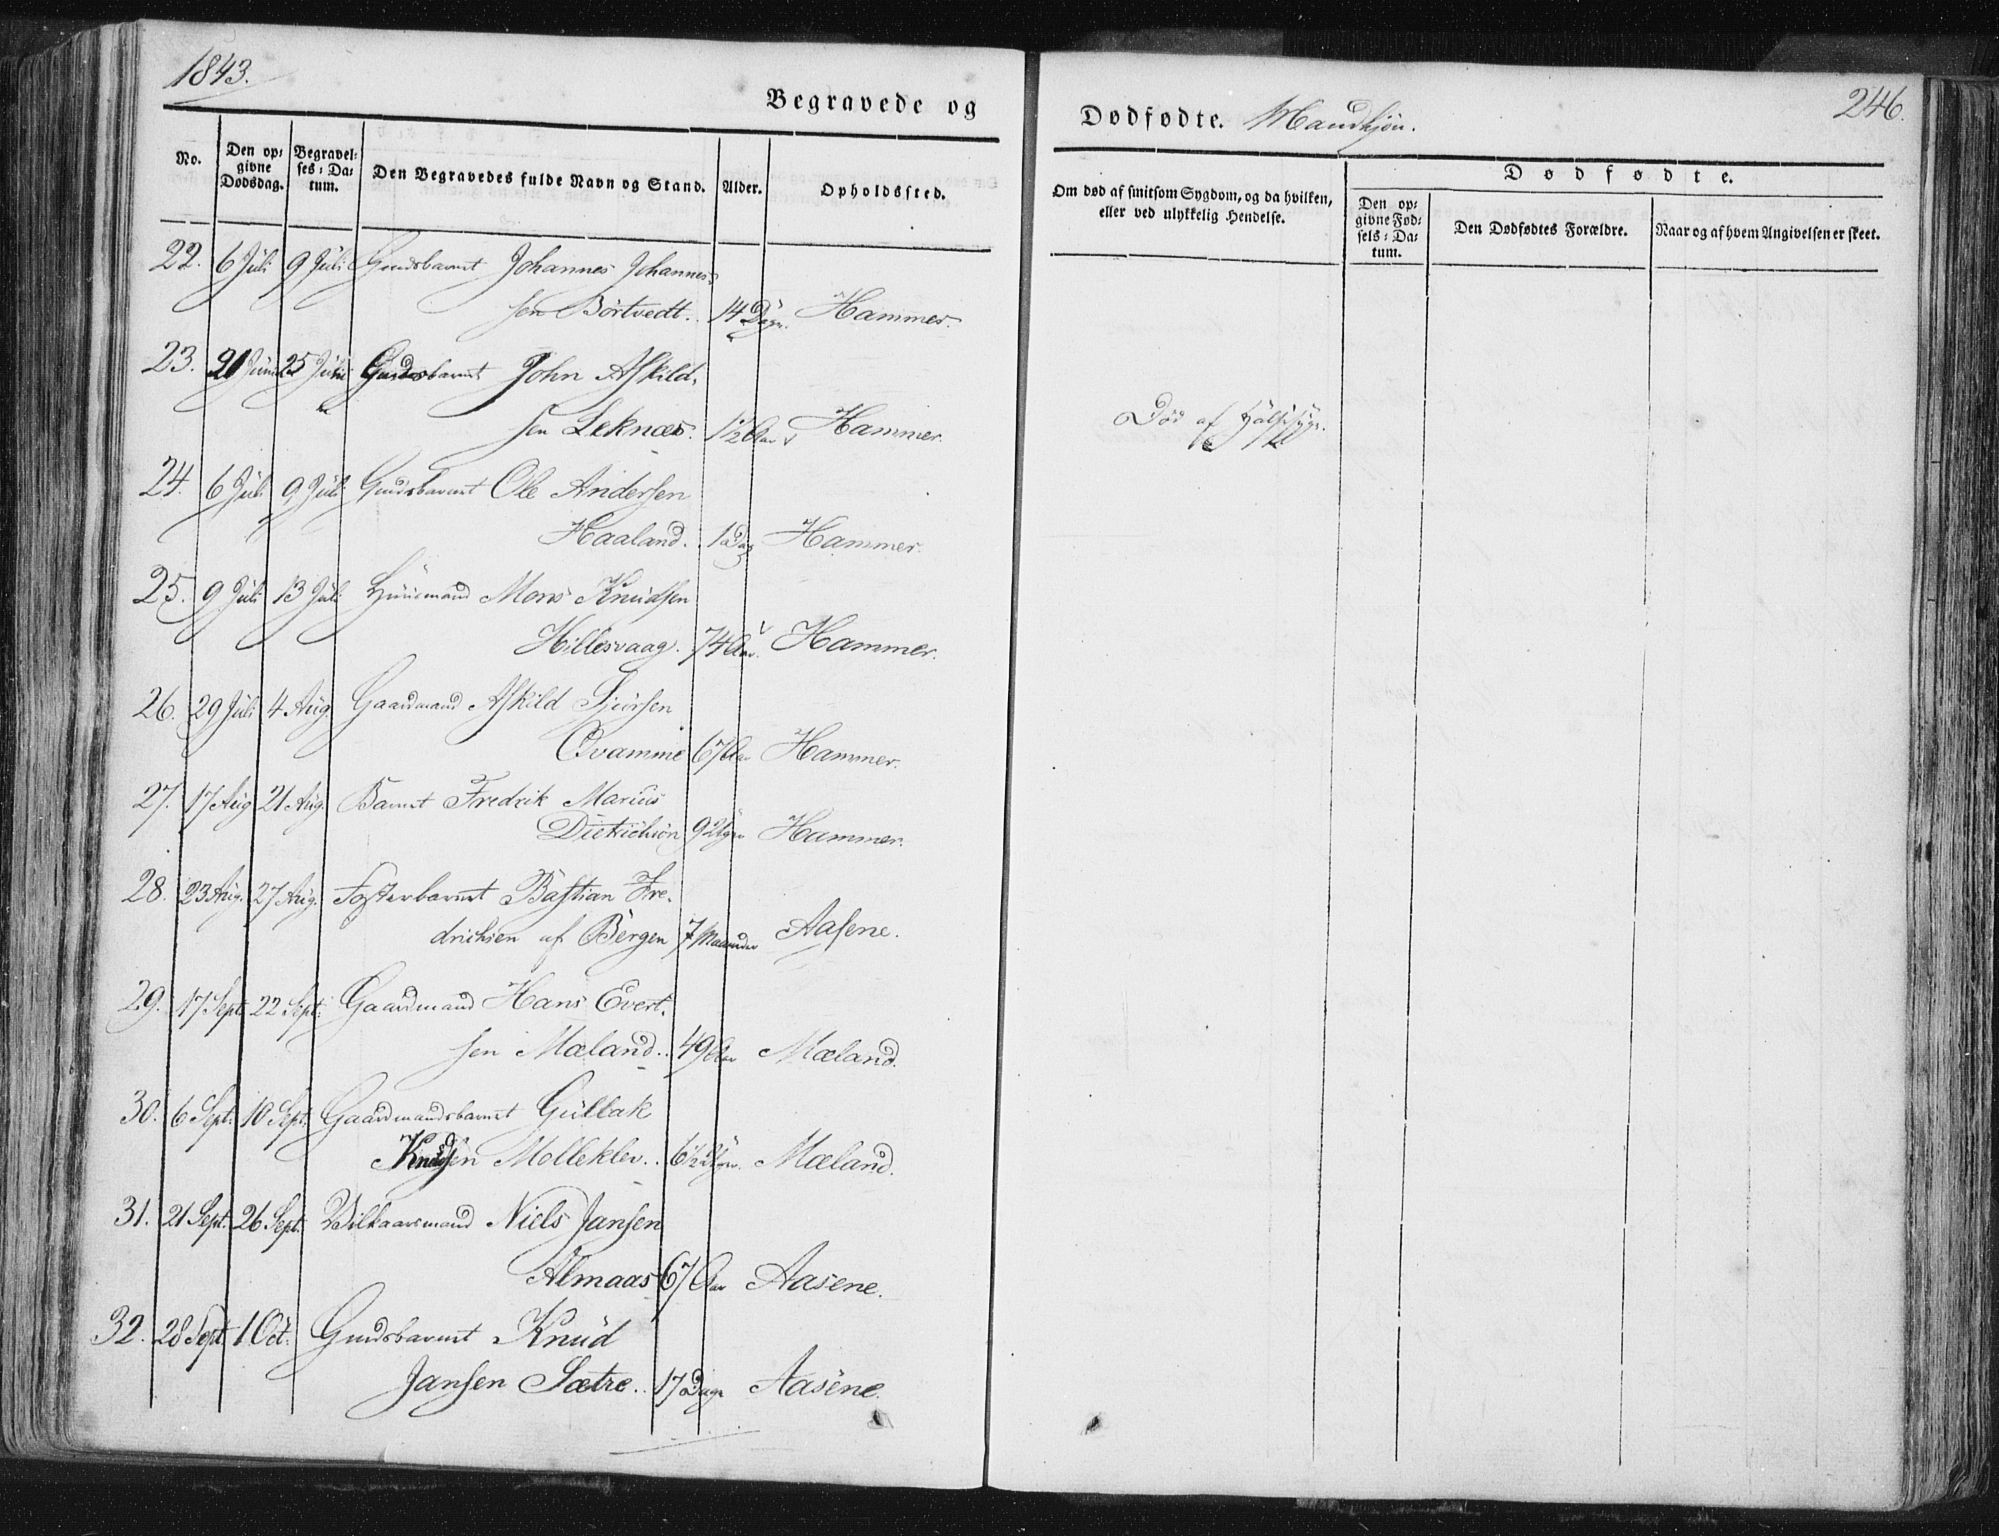 1843.
Begravede og
Dødfødte. Mandkjön.
246.
No.
Den opgivne Dødsdag.
Begravelses-Datum.
Den Begravedes fulde Navn og Stand.
Alder.
Opholdssted.
Om død af smitsom Sygdom, og da hvilken, eller ved ulykkelig Hendelse.
Dødfødte.
Den opgivne Fødsels-Datum.
Den Dødfødtes Forældre.
Naar og af hvem Angivelsen er skeet.
22. 6 Juli 9 Juli Gmdsbarnet Johannes Johannes-
sen Börtvedt. 14 Dage. Hammer.
23. 21 Juni 25 Gmdsbarnet John Askild-
sen Leknæs. 1½ Aar Hammer
Död af
24. 6 Juli 9 Juli Gmdsbarnet Ole Andersen
Haaland. 1 Dag Hammer.
25. 9 Juli 13 Juli Huusmand Mons Knudsen
Hillesvaag. 74 Aar. Hammer.
26. 29 Juli 4 Aug. Gaardmand Askild Sjursen
Qvamme 67 Aar Hammer.
27. 17 Aug 21 Aug. Barnet Fredrik Marius
Dietrichson 9 Uger Hammer.
28. 23 Aug. 27 Aug. Fosterbarnet Bastian Fre-
drichsen af Bergen 7 Maaneder Aasene.
29. 17 Sept 22 Sept. Gaardmand Hans Evert-
sen Mæland. 49 Aar Mæland.
30. 6 Sept. 10 Sept. Gaardmandsbarnet Gullak
Knudsen Molleklev. 6½ Uger. Mæland.
31. 21 Sept. 26 Sept. Vilkaarsmand Niels Jansen
Almaas 67 Aar Aasene.
32. 28 Sept 1 Oct. Gmdsbarnet Knud
Jansen Sætre. 17 Dage Aasene.